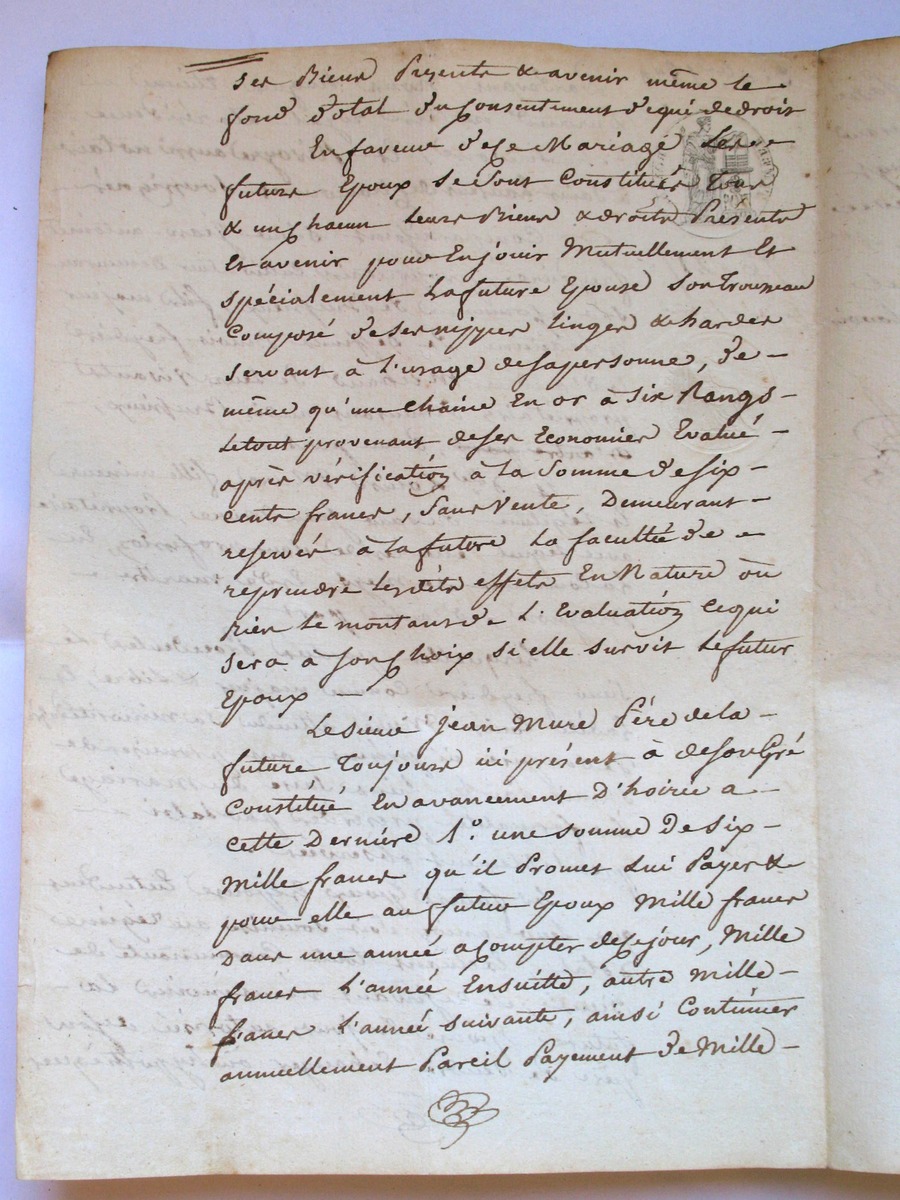 ses Biens Présents & avenir même le
fond dotal du Consentement de qui de droit
En faveur de ce Mariage Les
futurs Epoux se sont Constitués Tous
& un Chacun leurs Biens & droits Présents
Et avenir pour En jouir Mutuellement Et
spécialement La future Epouse son Trousseau
Composé de ses nippes linges & hardes
servant à l'usage de sa personne, de
même qu'une Chaine En or à Six Rangs
Le tout provenant de ses Economies Evalué
après vérification à la Somme de Six
cents francs, Sans Vente, Demeurant
reservés à La future La facultée de
reprendre Les dits effets En Nature où
bien Le montant de L'Evaluation Ce qui
sera à Son Choix si elle survit Le futur
Epoux
Le sieur Jean Mure Père de la
future Toujours ici présent à de Son Gré
Constitué En avancement D'hoirie a
cette Dernière 1.° une somme De Six
Mille francs qu'il Promet Lui Payer &
pour elle au futur Epoux Mille francs
Dans une année a Compter de Ce jour, Mille
francs L'année Ensuitte, autre Mille
francs L'année suivante, ainsi Continuer
annuellement Pareil Payement de Mille